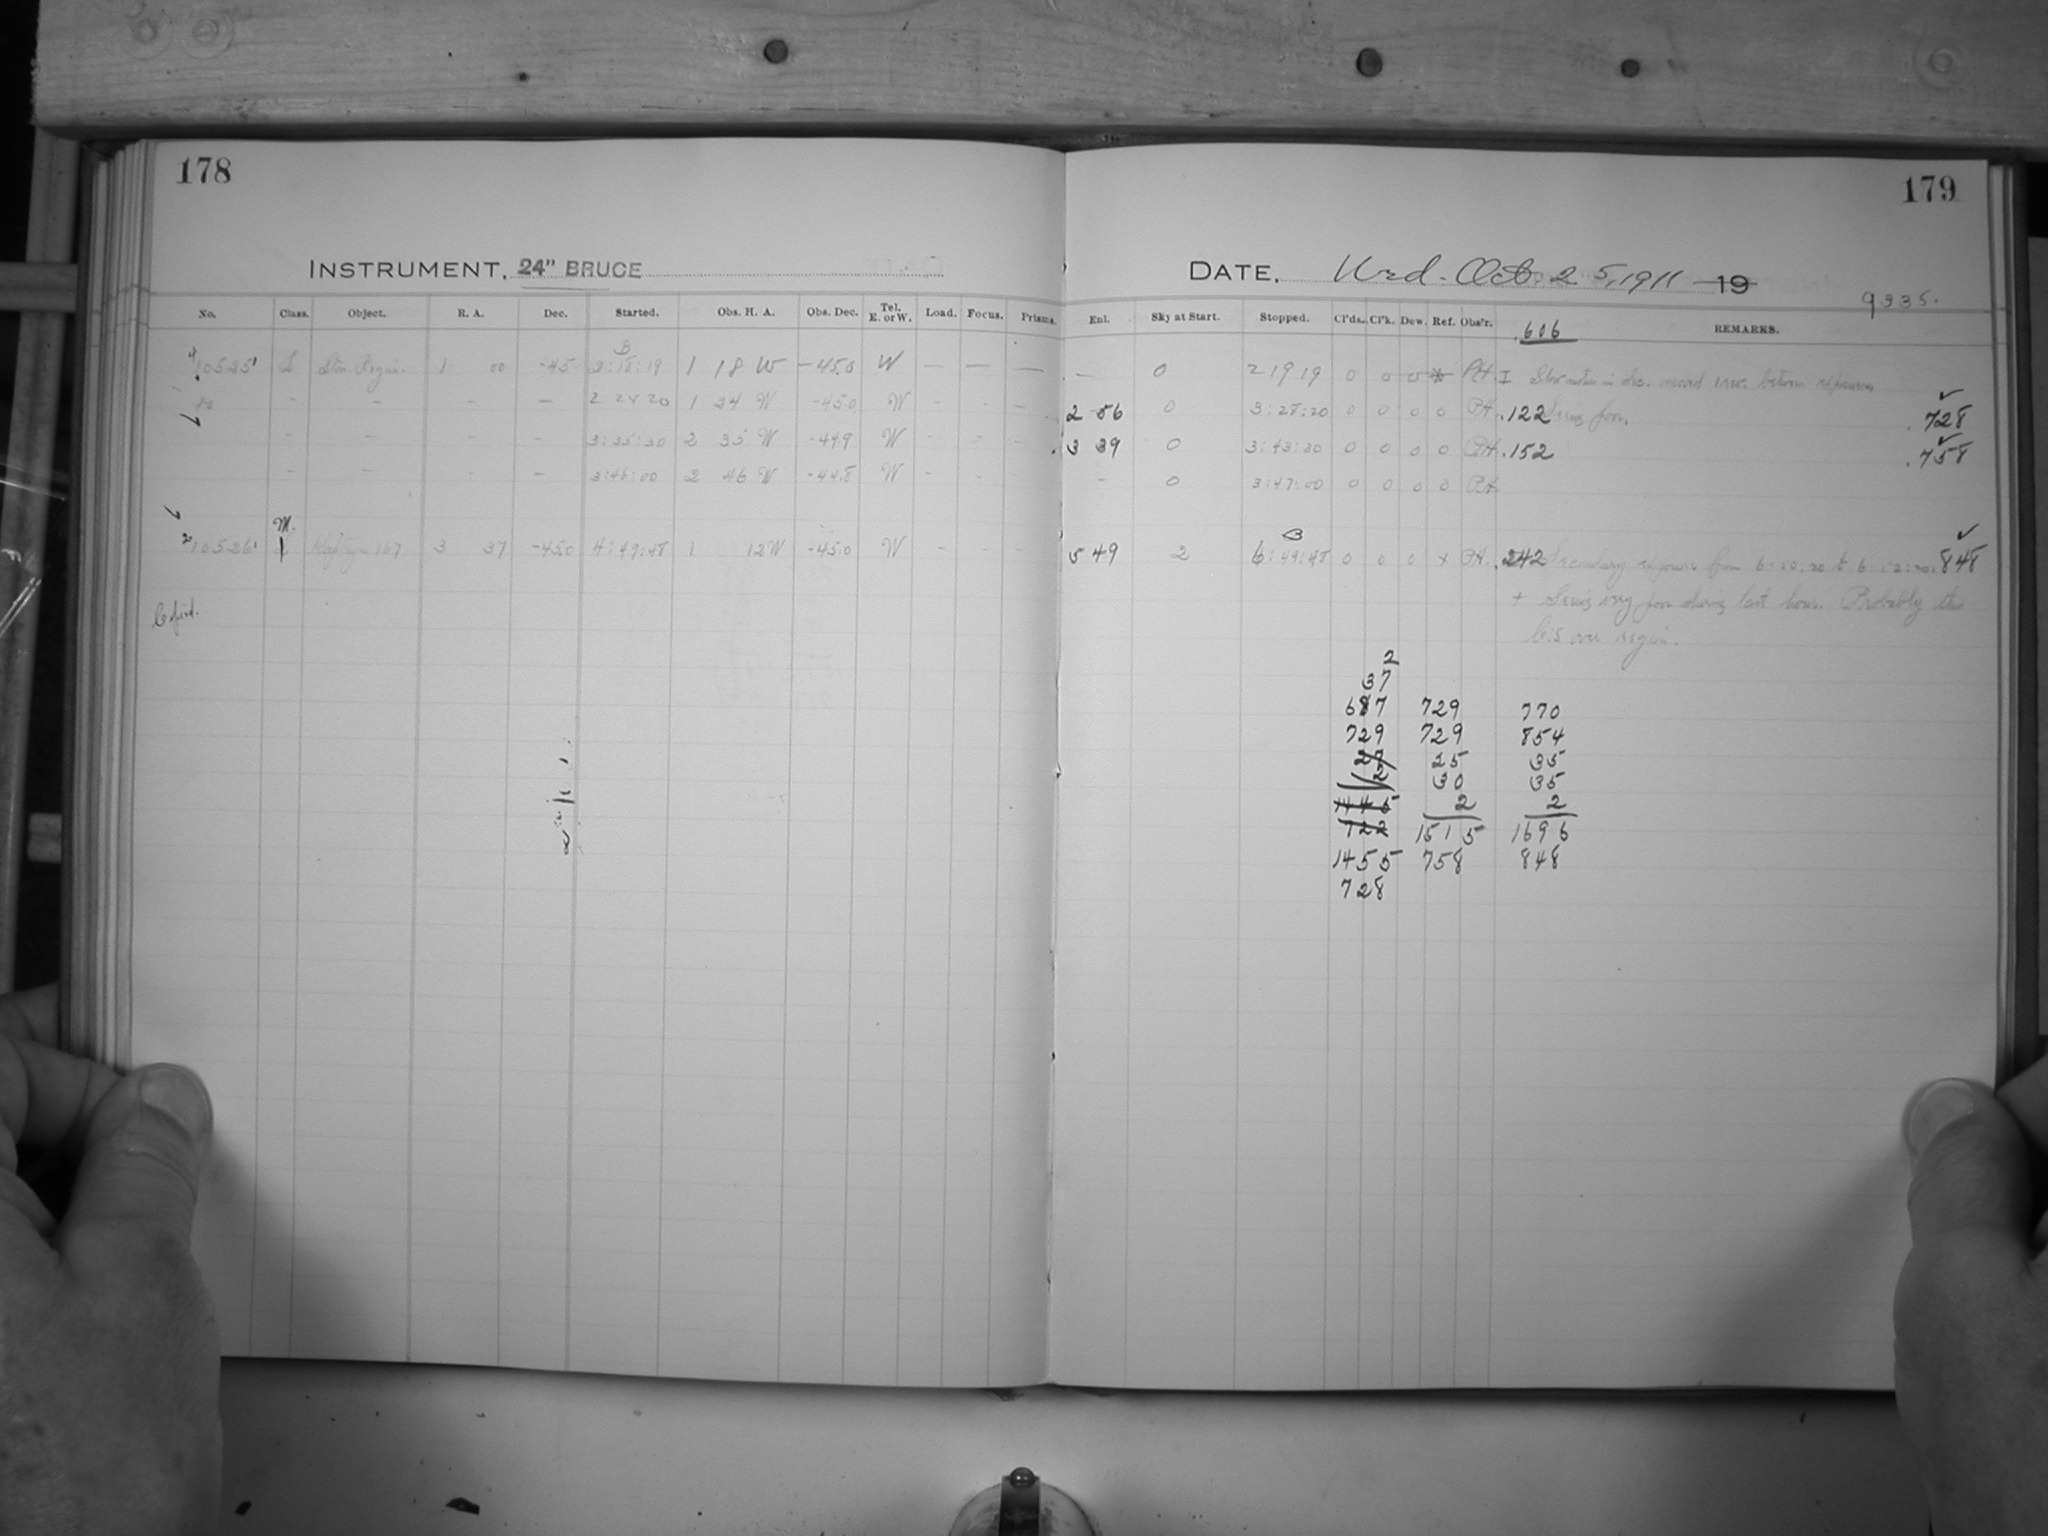 178
179
INSTRUMENT, 24" BRUCE
DATE, Wed. Oct. 25, 1911 19
9335.
No. Class. Object. R. A. Dec. Started. Obs. H. A. Obs. Dec. Tel. E. or W. Load. Focus. Prisms. Enl. Sky at Start. Stopped. Cl'ds. Cl'k. Dew. Ref. Obs'r. REMARKS.
.606
10525 1 00 -45 1 18 W -45.0 W — — — — 0 2 19 19 0 0 0 I Slow motion in dec. moved between exposures
— — — — 2 24 20 1 24 W -45.0 W — — — 2 56 0 3:28:20 0 0 0 0 .122 Seeing poor. .728
— — — — 3:35:30 2 35 W -44.9 W — — — 3 39 0 3:43:30 0 0 0 0 .152 .758
— — — — 3:46:00 2 46 W -44.8 W — — — — 0 3:47:00 0 0 0 0
M.
10526 Kapteyn 167 3 37 -45.0 4:49:48 1 12 W -45.0 W — — — 5 49 2 6:49:48 0 0 0 x .242 Secondary exposure from .848
+ Seeing very poor during last hour. Probably the
region.
2
37
687 729 770
729 729 854
27 25 35
2 30 35
1445 2 2
722 1515 1696
1455 758 848
728